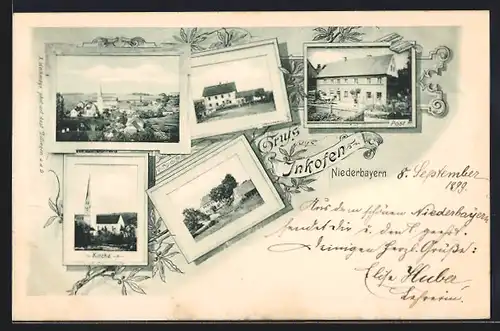 Post
Gruss aus
Inkofen
Niederbayern.
Kirche
8. September
1899.
Aus dem schönen Niederbayern
sendet dir u. den
deinigen herzl. Grüße:
Elise Huber
Lehrerin.